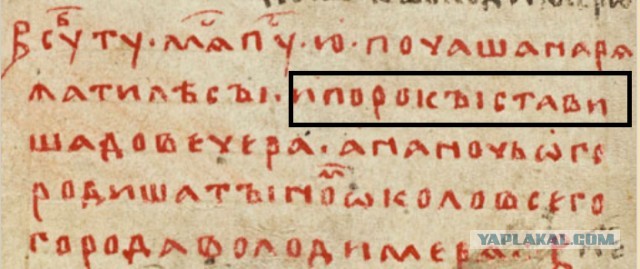 В су҃ту · мѧ҃пу҃ · ю · почаша нарѧ
жати лѣсы · и порокы стави
ша до вечера · а на ночь ѡго
родиша тыноⷨ ѡколо всего
города володимера
YAPLAKAL.COM